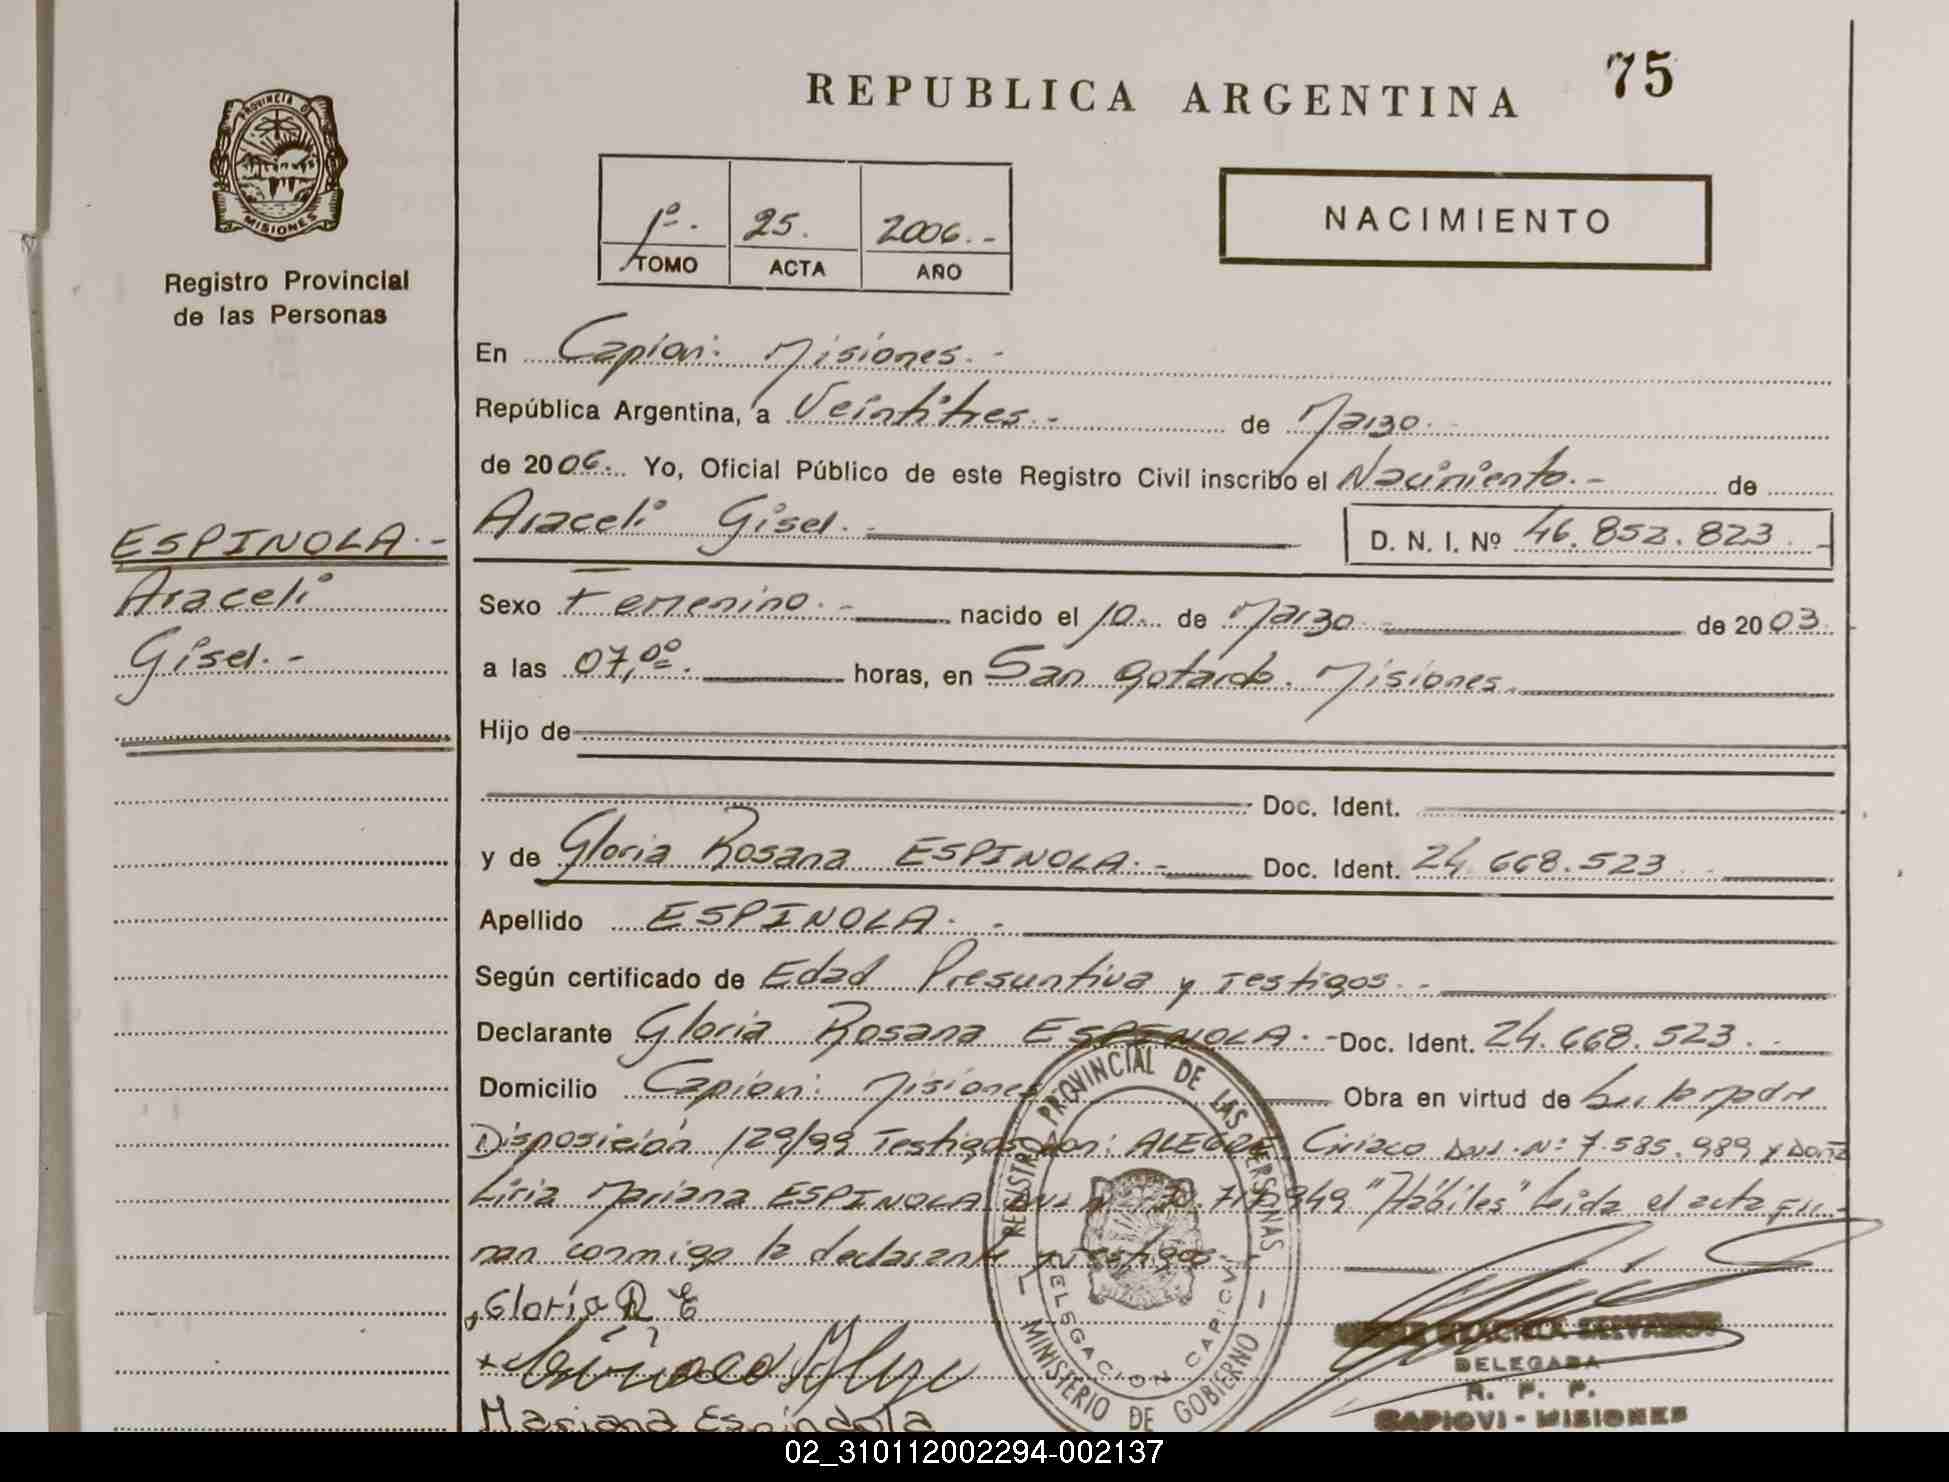 REPUBLICA ARGENTINA
75
PROVINCIA DE
MISIONES
Registro Provincial
de las Personas
1º.-
25.
2006.-
TOMO
ACTA
AÑO
NACIMIENTO
En Capiovi: Misiones.-
República Argentina, a Veintitres.- de Marzo.-
de 2006. Yo, Oficial Público de este Registro Civil inscribo el Nacimiento.- de
Araceli Gisel. D. N. I. Nº 46.852.823.-
ESPINOLA.-
Araceli
Gisel.-
Sexo Femenino.- nacido el 10 de Marzo de 2003
a las 07,00. horas, en San Gotardo. Misiones.
Hijo de
Doc. Ident.
y de Gloria Rosana ESPINOLA.- Doc. Ident. 24.668.523
Apellido ESPINOLA.-
Según certificado de Edad Presuntiva y Testigos.-
Declarante Gloria Rosana ESPINOLA.- Doc. Ident. 24.668.523.
Domicilio Capiovi: Misiones Obra en virtud de ser la madre
Disposición 129/99 Testigos son: ALEGRE Ciriaco DNI.Nº 7.585.989 y Doña
Liria Mariana ESPINOLA DNI Nº "Hábiles" Leida el acta fir-
man conmigo la declarante y testigos.
Gloria R E
Ciriaco Alegre
Mariana Espindola
REGISTRO PROVINCIAL DE LAS PERSONAS
DELEGACION CAPIOVI
MINISTERIO DE GOBIERNO
DELEGADA
R. P. P.
CAPIOVI - MISIONES
02_310112002294-002137